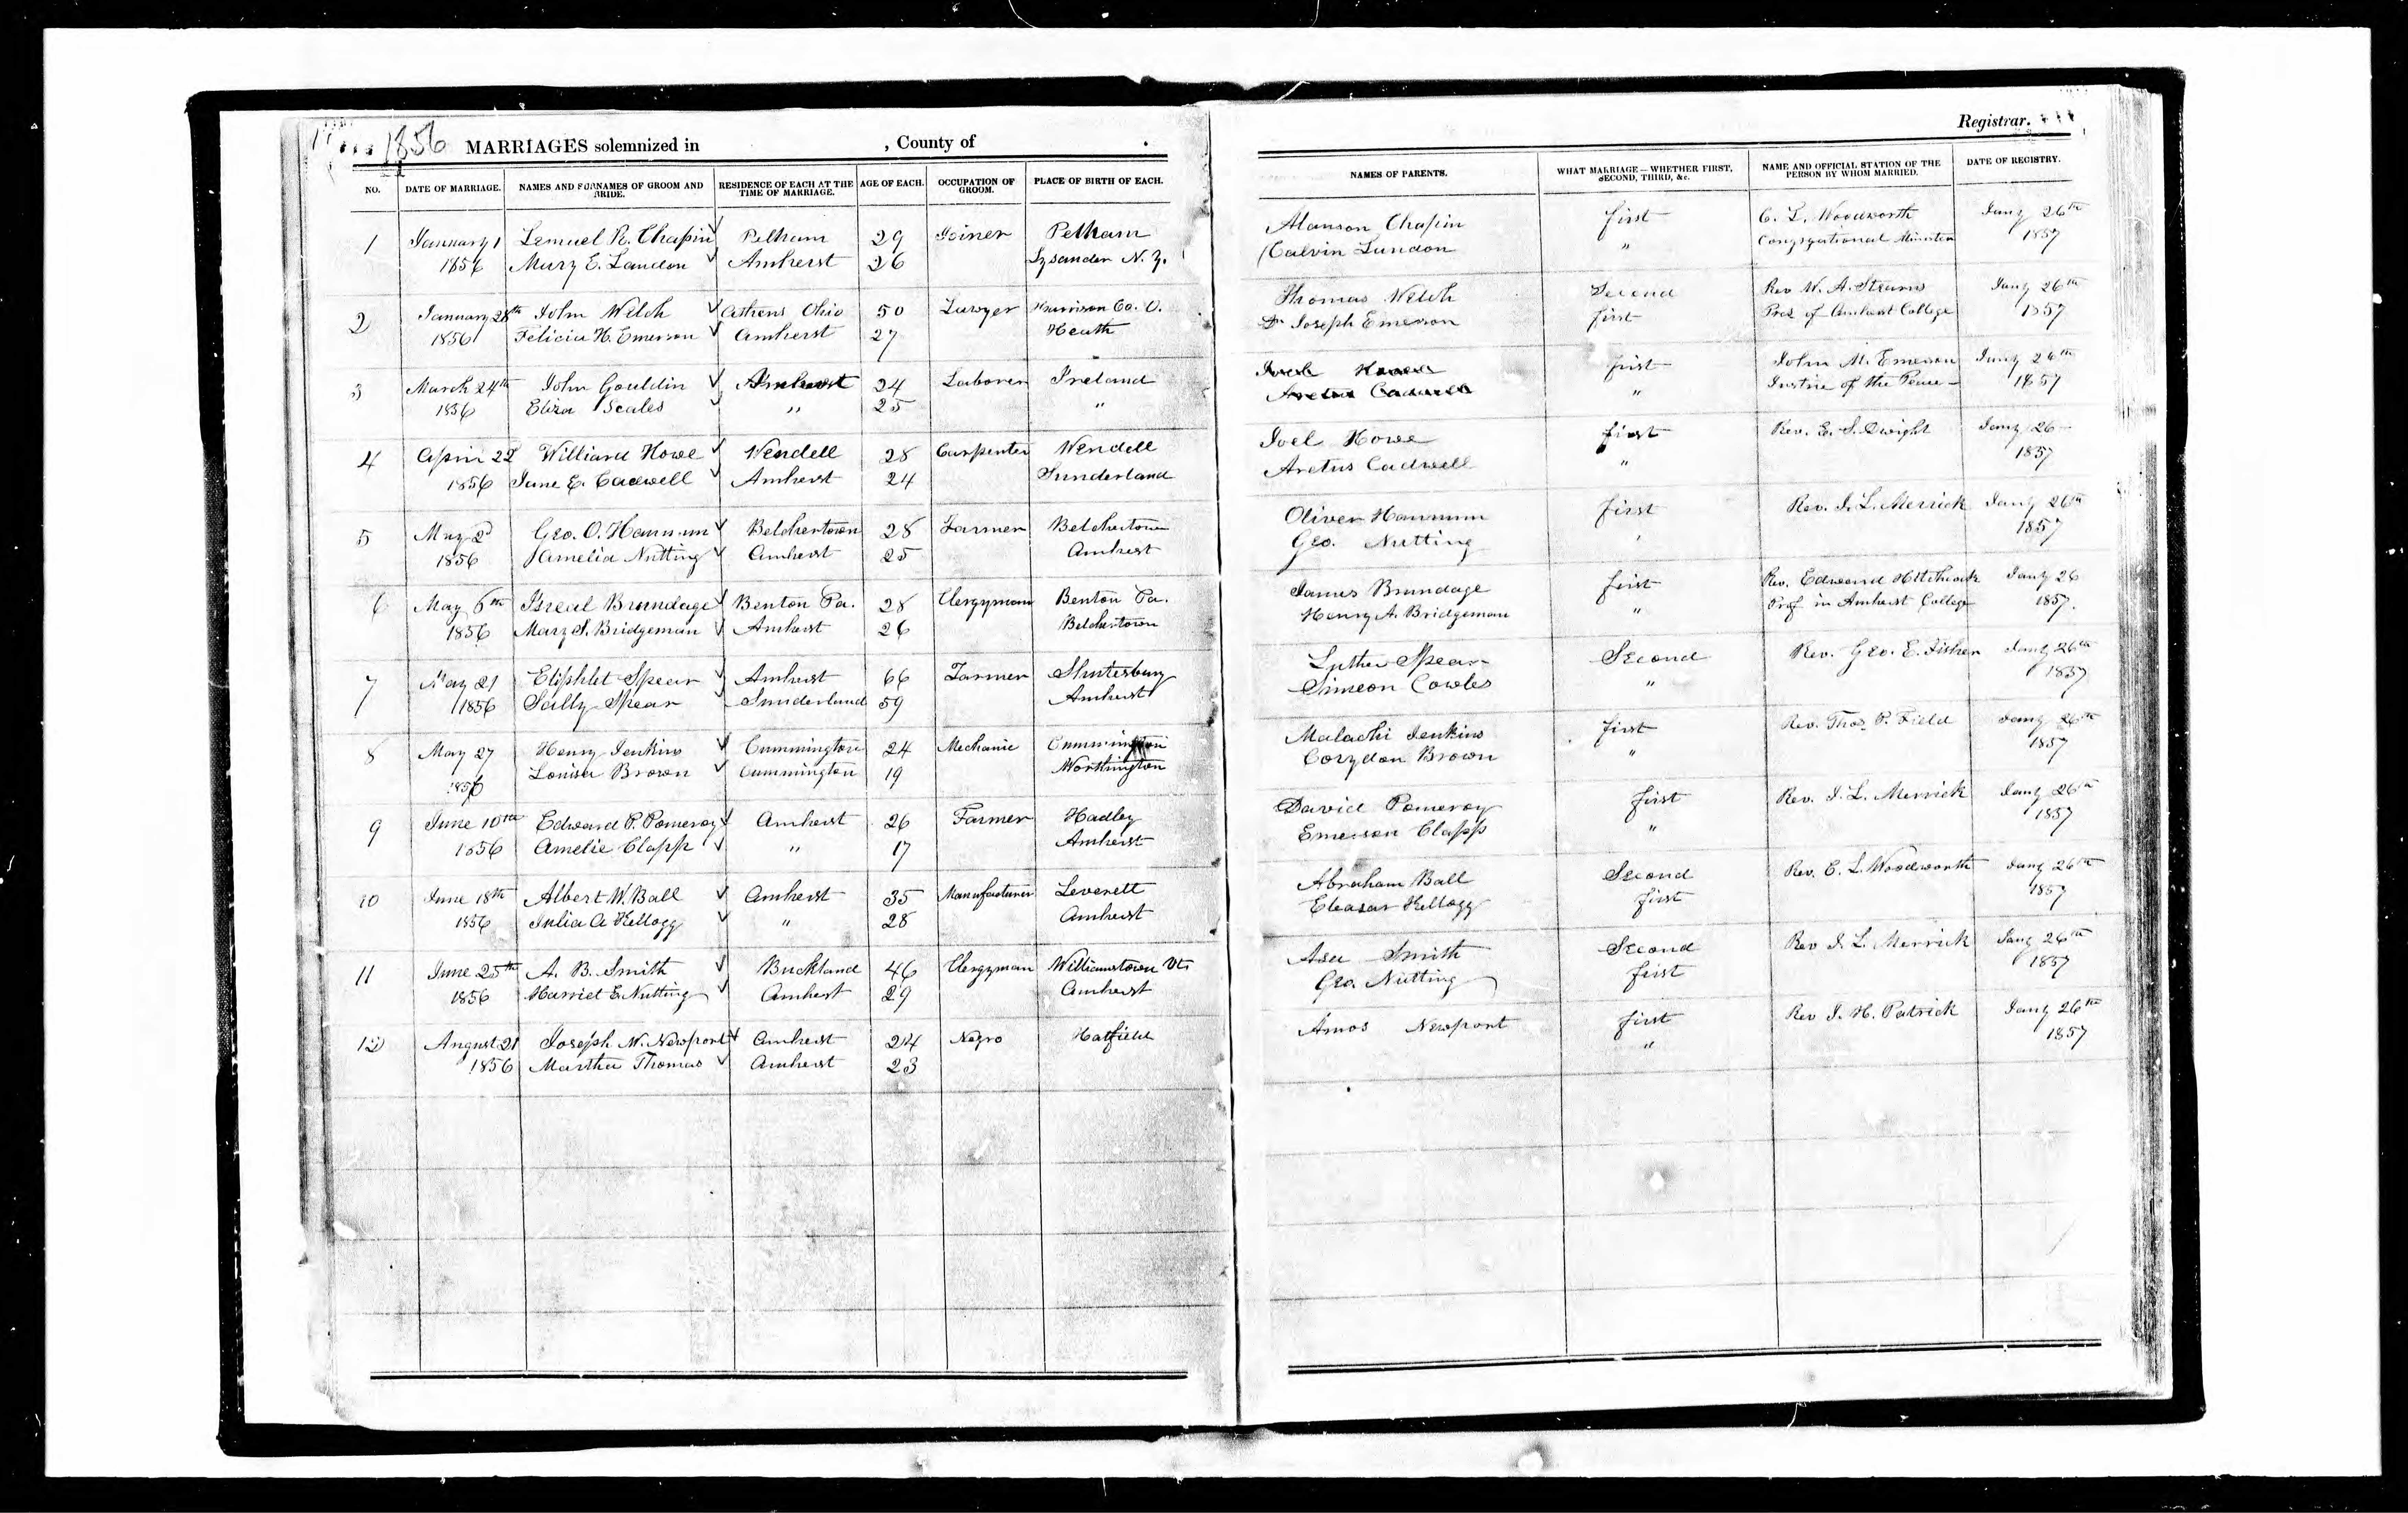 1856 MARRIAGES solemnized in , County of .
Registrar.
NO. DATE OF MARRIAGE. NAMES AND SURNAMES OF GROOM AND BRIDE. RESIDENCE OF EACH AT THE TIME OF MARRIAGE. AGE OF EACH. OCCUPATION OF GROOM. PLACE OF BIRTH OF EACH. NAMES OF PARENTS. WHAT MARRIAGE – WHETHER FIRST, SECOND, THIRD, &c. NAME AND OFFICIAL STATION OF THE PERSON BY WHOM MARRIED. DATE OF REGISTRY.
1 January 1 Lemuel R. Chapin Pelham 29 Joiner Pelham Alanson Chapin first C. L. Woodworth Jany 26th
1856 Mary E. Landon Amherst 26 Lysander N. Y. Calvin Lundon " Congregational Minister 1857
2 January 28th John Welch Athens Ohio 50 Lawyer Harrison Co. O. Thomas Welch Second Rev W. A. Stearns Jany 26th
1856 Felicia H. Emerson Amherst 27 Heath Dr Joseph Emerson first Pres of Amherst College 1857
3 March 24th John Gouldin Amherst 24 Laborer Ireland first John M. Emerson Jany 26th
1856 Eliza Scales " 25 " " Justice of the Peace 1857
4 April 22 Williard Howe Wendell 28 Carpenter Wendell Joel Howe first Rev. E. S. Dwight Jany 26
1856 Jane E. Cadwell Amherst 24 Sunderland Aretus Cadwell " 1857
5 May 2d Geo. O. Hannum Belchertown 28 Farmer Belchertown Oliver Hannum first Rev. J. L. Merrick Jany 26th
1856 Amelia Nutting Amherst 25 Amherst Geo. Nutting " 1857
6 May 6th Isreal Brundage Benton Pa. 28 Clergyman Benton Pa. James Brundage first Rev. Edward Hitchcock Jany 26
1856 Mary S. Bridgeman Amherst 26 Belchertown Henry A. Bridgeman " Prof in Amherst College 1857.
7 May 21 Eliphlet Spear Amherst 66 Farmer Shutesbury Luther Spear Second Rev. Geo. E. Fisher Jany 26th
1856 Sally Spear Sunderland 59 Amherst Simeon Cowles " 1857
8 May 27 Henry Jenkins Cummington 24 Mechanic Cummington Malachi Jenkins first Rev. Thos P. Field Jany 26th
1856 Louisa Brown Cummington 19 Worthington Corydon Brown " 1857
9 June 10th Edward P. Pomeroy Amherst 26 Farmer Hadley David Pomeroy first Rev. J. L. Merrick Jany 26th
1856 Amelie Clapp " 17 Amherst Emerson Clapp " 1857
10 June 18th Albert W. Ball Amherst 35 Manufacturer Leverett Abraham Ball Second Rev. C. L. Woodworth Jany 26th
1856 Julia A Kellogg " 28 Amherst Eleasar Kellogg first 1857
11 June 25th A. B. Smith Buckland 46 Clergyman Williamstown Vt. Asa Smith Second Rev J. L. Merrick Jany 26th
1856 Harriet E. Nutting Amherst 29 Amherst Geo. Nutting first 1857
12 August 21 Joseph W. Newport Amherst 24 Negro Hatfield Amos Newport first Rev J. H. Patrick Jany 26th
1856 Martha Thomas Amherst 23 " 1857